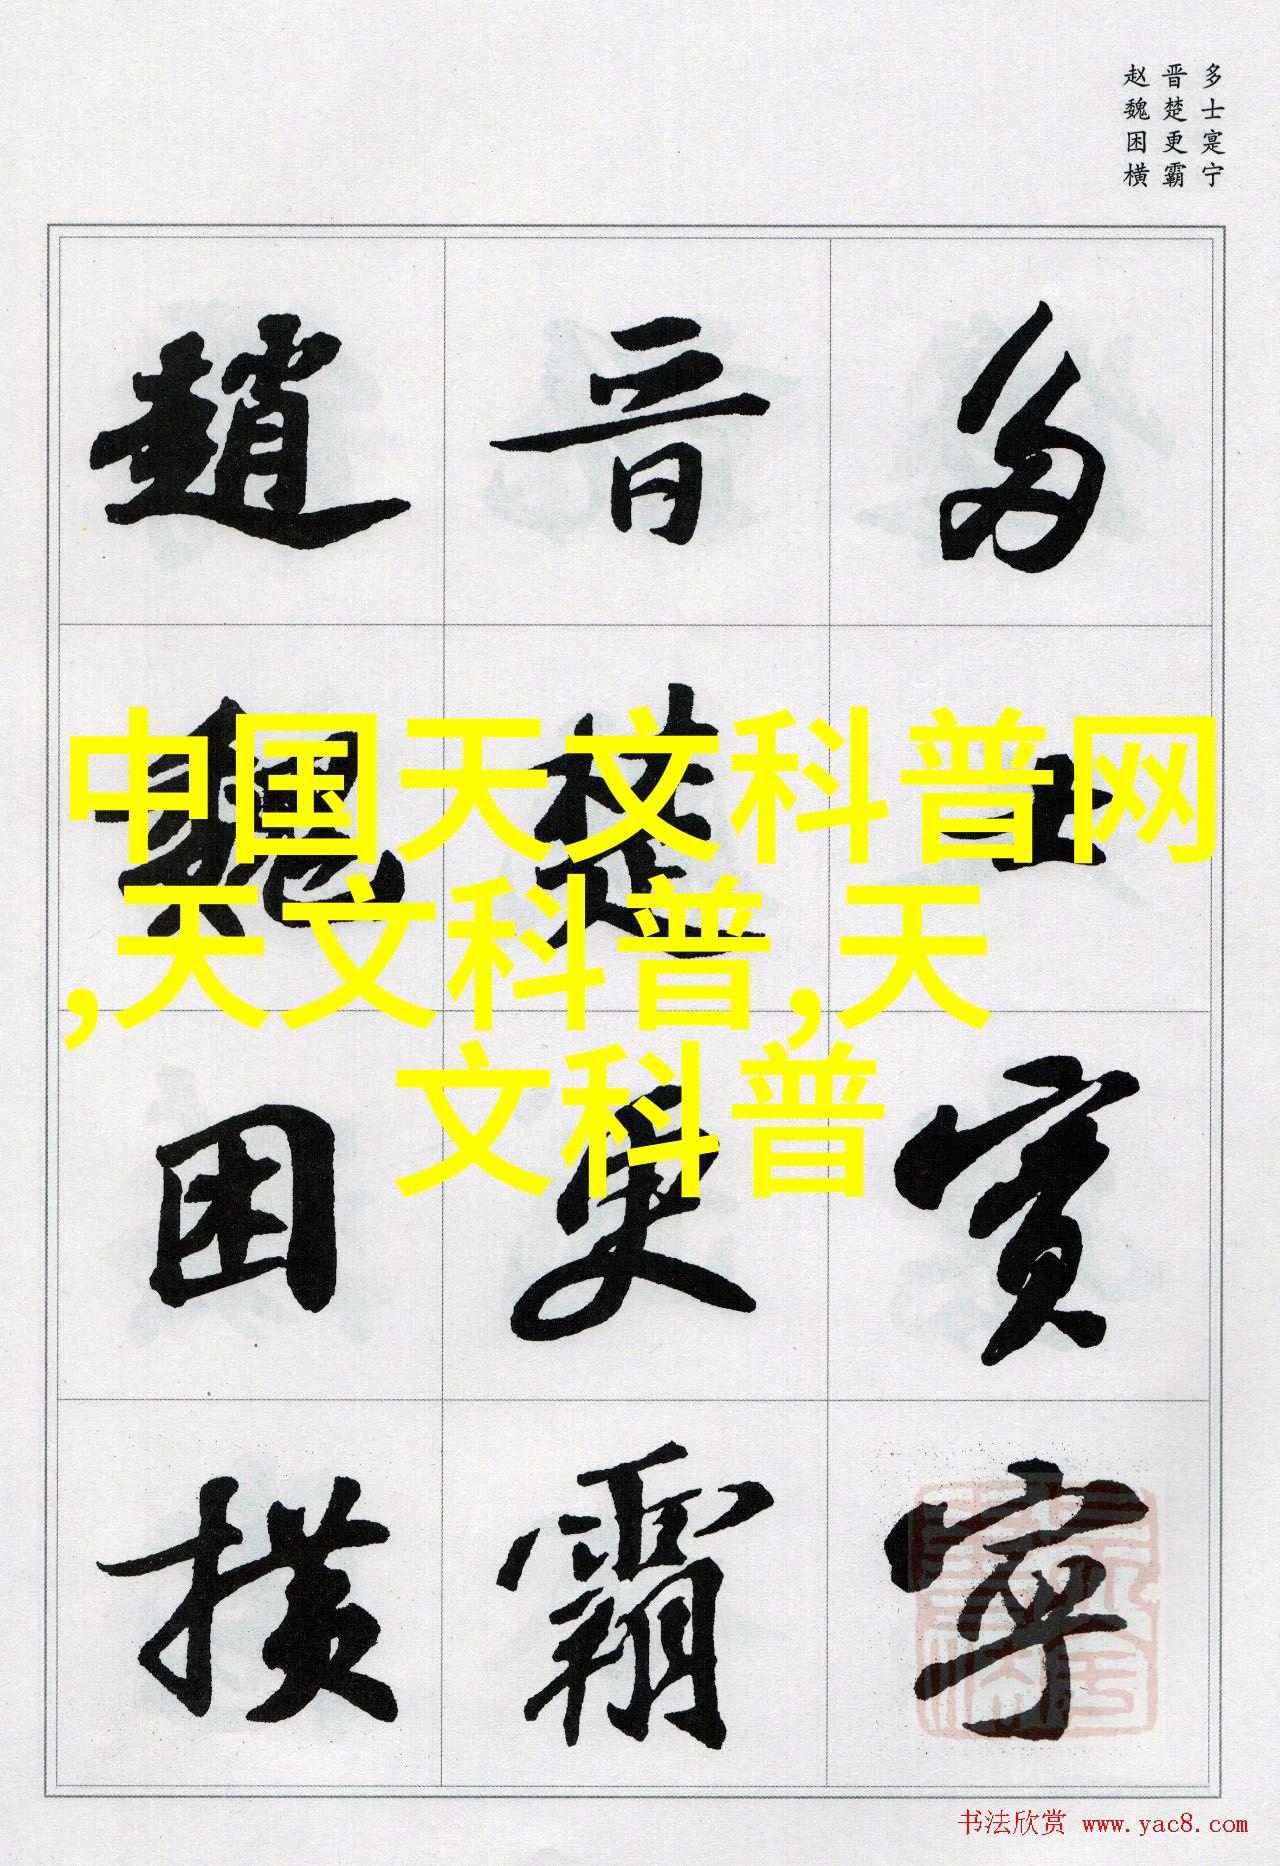 多士寔宁
晋楚更霸
赵魏困横
多士寔寧
晋楚更霸
趙魏困横
中国天文科普网
,天文科普,天
文科普
书法欣赏 www.yac8.com